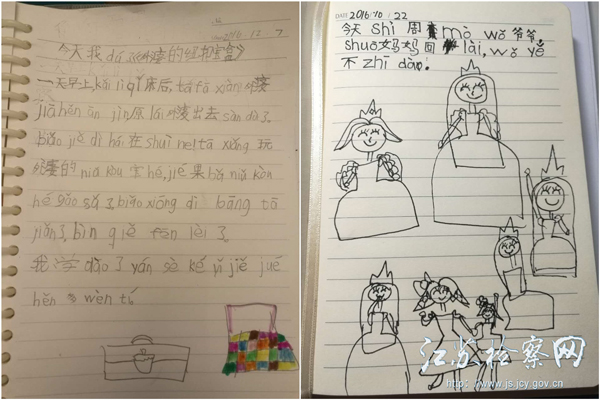 2016.12 7
今天我dú 《的纽扣宝盒》
一天早上, kǎi lì qǐ床后, tā fā xiàn
jiā hěn ān jìn 原lái 出去 sàn bù了.
biǎo jiě dì hái 在 shuì nel tā xiǎng 玩
的 niǔ kòu 宝hé, jié果 bǎ niǔ kòu
hé gǎo sǎ了 biǎo xiōng dì bāng tā
jiǎn了. bìn qiě fēn lèi了.
我 dào了 yán sè ké yǐ jiě jué
hěn 多 wèn tí.
DATE 2016.10.22
今天 shì 周mò wǒ 爷爷
shuō 妈妈回 lái, wǒ yě
不 zhī dào!
江苏检察网
http://www.js.jcy.gov.cn